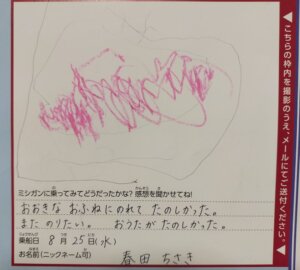 ◀こちらの枠内を撮影のうえ、メールにてご送付ください。◀
ミシガンに乗ってみてどうだったかな? 感想を聞かせてね!
おおきな おふねにのれて たのしかった。
また のりたい。 おうたが たのしかった。
乗船日 8月25日(水)
お名前(ニックネーム可) 春田 ちさき